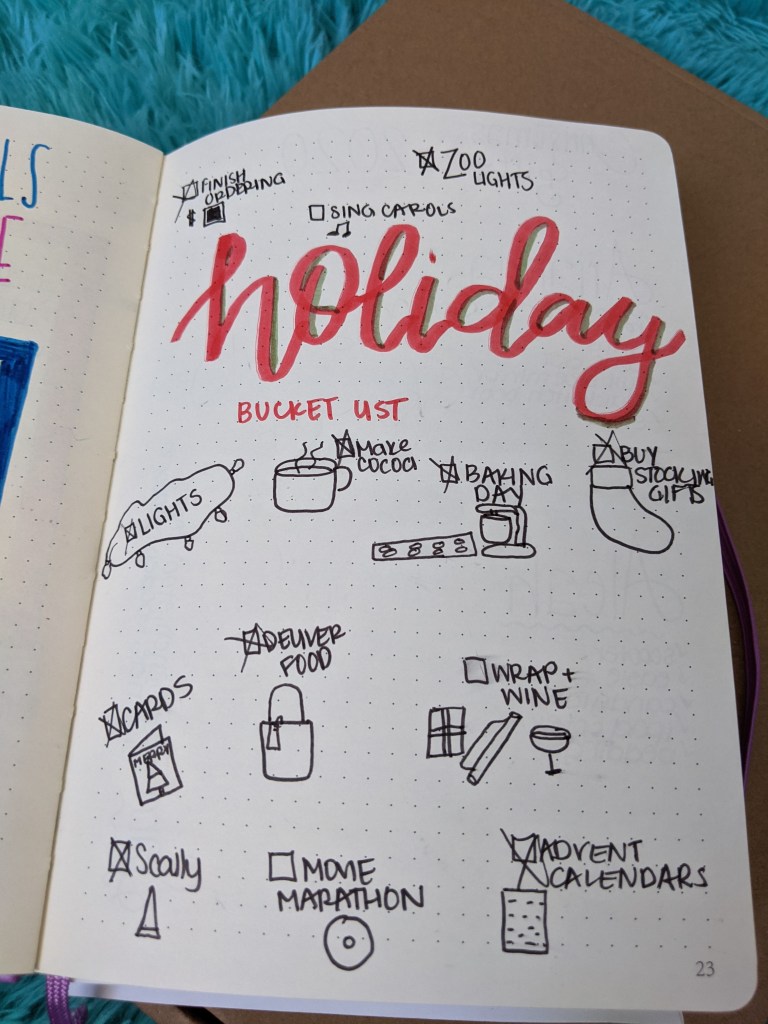 LS
E
FINISH
ORDERING
$
ZOO
LIGHTS
SING CAROLS
holiday
BUCKET LIST
LIGHTS
Make
cocoa
BAKING
DAY
BUY
STOCKING
GIFTS
DELIVER
FOOD
CARDS
MERRY
WRAP +
WINE
Scally
MOVIE
MARATHON
ADVENT
CALENDARS
23